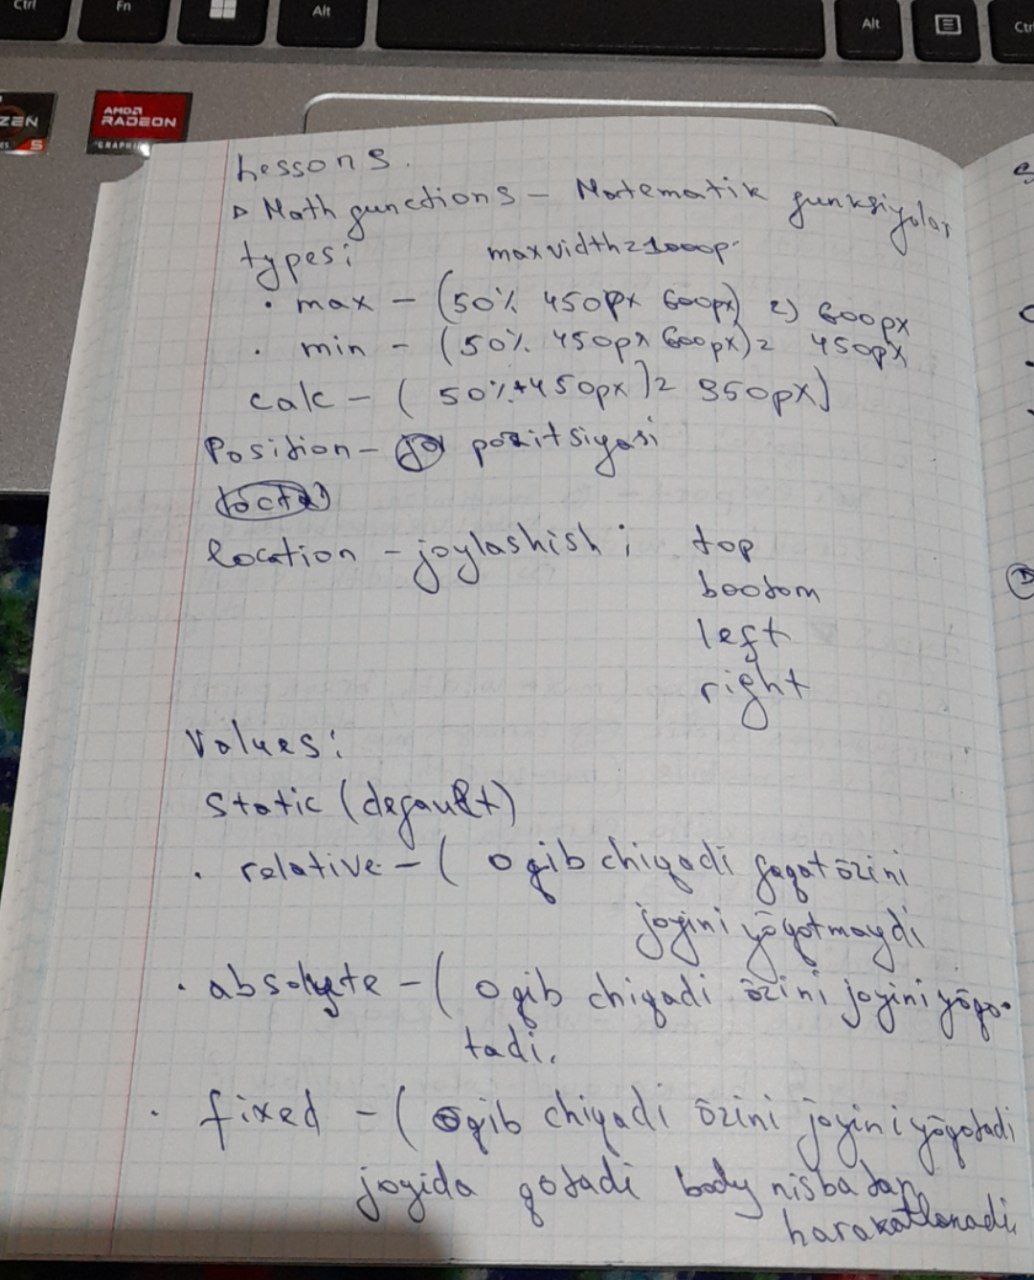 Ctrl Fn Alt Alt Ctr
ZEN 5 AMD RADEON GRAPHI
Lessons.
Math functions - Matematik funksiyalar
types: max width = 1000p
• max - (50% 450px 600px) 2) 600px
• min - (50% 450px 600px) = 450px
calc - ( 50%+450px ) = 950px)
Position - pozitsiyasi
location - joylashish ; top
bootom
left
right
Values:
Static (default)
• relative - ( oqib chiqadi faqat ōzini
joyini yōqotmaydi
• absolyte - ( oqib chiqadi ōzini joyini yōqo-
tadi.
• fixed - ( oqib chiqadi ōzini joyini yōqotadi
joyida qotadi body nisbatan
harakatlanadi